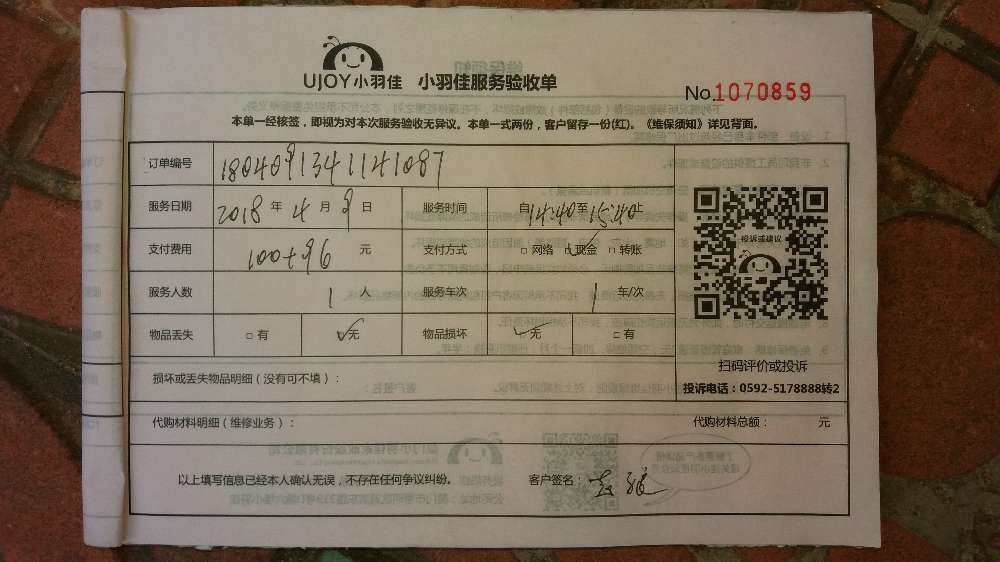 UJOY小羽佳 小羽佳服务验收单
No.1070859
本单一经核签，即视为对本次服务验收无异议。本单一式两份，客户留存一份(红)。《维保须知》详见背面。
订单编号 1804091341141087
服务日期 2018 年 4 月 9 日 服务时间 自14:40至15:40止
支付费用 100+96 元 支付方式 □ 网络 □ 现金 □ 转账
服务人数 1 人 服务车次 1 车/次
物品丢失 □ 有 □ 无 物品损坏 □ 无 □ 有
投诉或建议
扫码评价或投诉
投诉电话：0592-5178888转2
损坏或丢失物品明细（没有可不填）：
代购材料明细（维修业务）： 代购材料总额： 元
以上填写信息已经本人确认无误，不存在任何争议纠纷。 客户签名：